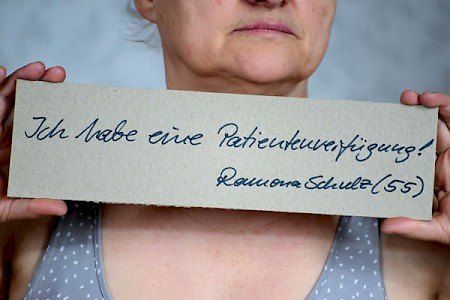 Ich habe eine Patientenverfügung!
Ramona Schulz (55)